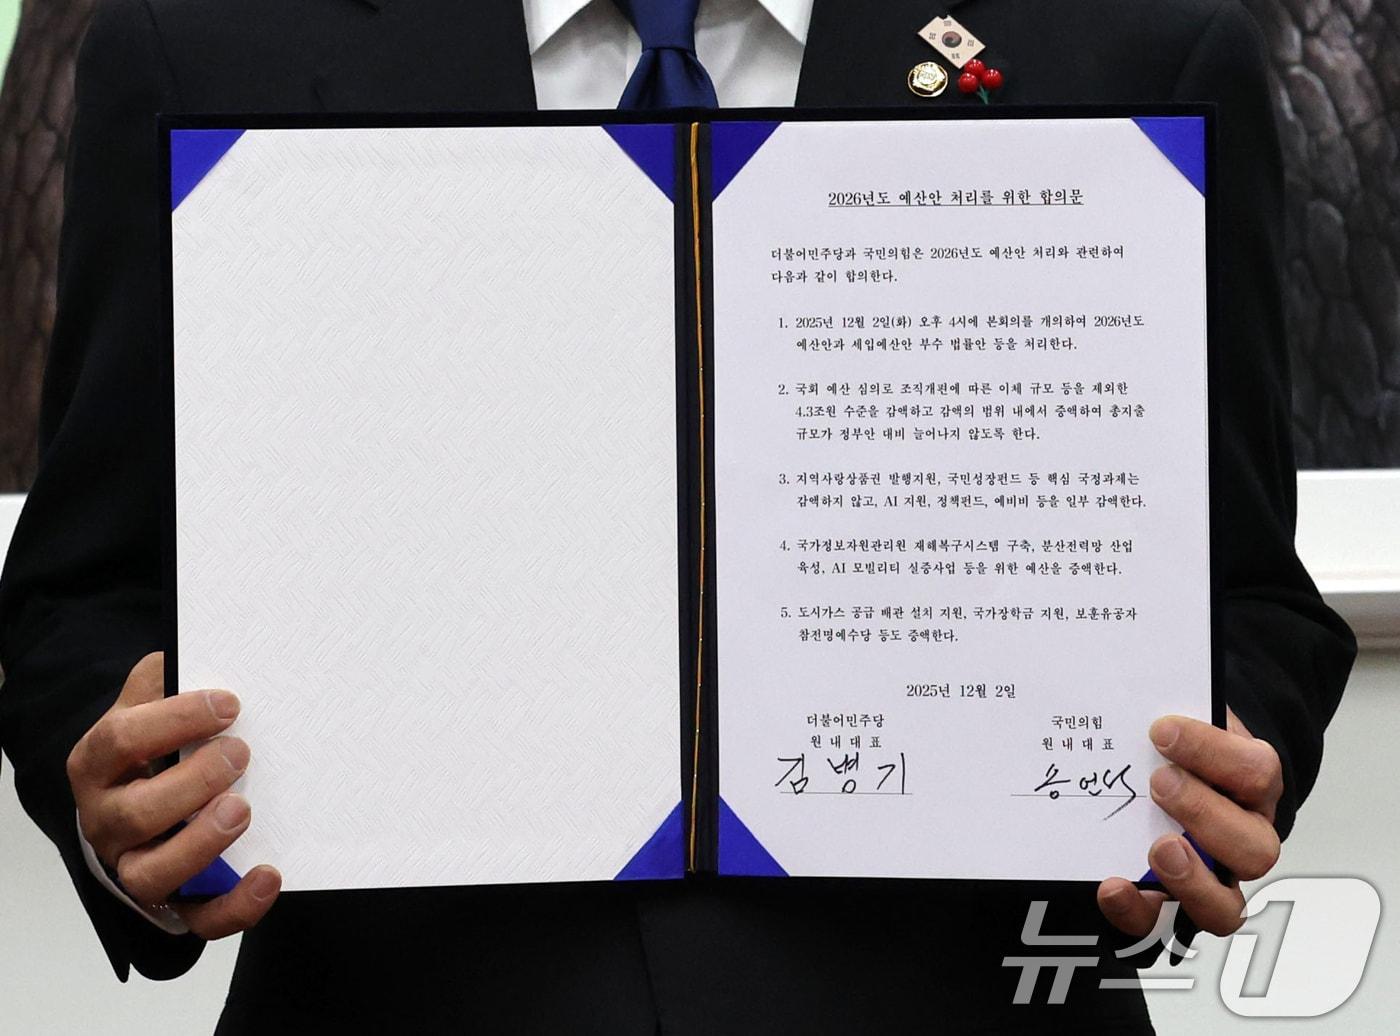 2026년도 예산안 처리를 위한 합의문
더불어민주당과 국민의힘은 2026년도 예산안 처리와 관련하여
다음과 같이 합의한다.
1. 2025년 12월 2일(화) 오후 4시에 본회의를 개의하여 2026년도
예산안과 세입예산안 부수 법률안 등을 처리한다.
2. 국회 예산 심의로 조직개편에 따른 이체 규모 등을 제외한
4.3조원 수준을 감액하고 감액의 범위 내에서 증액하여 총지출
규모가 정부안 대비 늘어나지 않도록 한다.
3. 지역사랑상품권 발행지원, 국민성장펀드 등 핵심 국정과제는
감액하지 않고, AI 지원, 정책펀드, 예비비 등을 일부 감액한다.
4. 국가정보자원관리원 재해복구시스템 구축, 분산전력망 산업
육성, AI 모빌리티 실증사업 등을 위한 예산을 증액한다.
5. 도시가스 공급 배관 설치 지원, 국가장학금 지원, 보훈유공자
참전명예수당 등도 증액한다.
2025년 12월 2일
더불어민주당
원내대표
김병기
국민의힘
원내대표
송언석
뉴스1